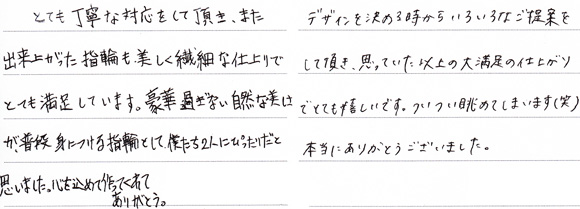 とても丁寧な対応をして頂き、また
出来上がった指輪も、美しく繊細な仕上りで
とても満足しています。豪華過ぎない自然な美しさ
が、普段身につける指輪として、僕たち2人にぴったりだと
思いました。心を込めて作ってくれて
ありがとう。
デザインを決める時からいろいろなご提案を
して頂き、思っていた以上の大満足の仕上がり
でとても嬉しいです。ついつい眺めてしまいます(笑)
本当にありがとうございました。